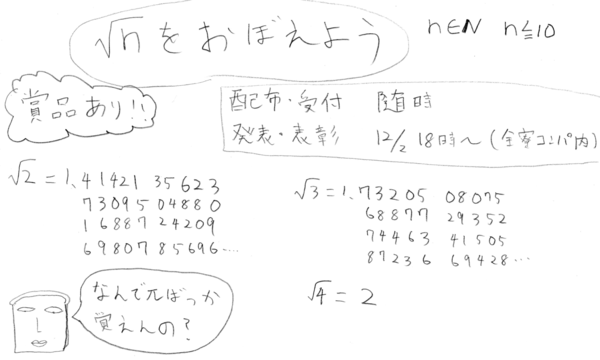 √nをおぼえよう
n∈N n≦10
賞品あり!!
配布・受付 随時
発表・表彰 12/2 18時〜(全寮コンパ内)
√2=1.41421 35623
73095 04880
16887 24209
69807 85696…
√3=1.73205 08075
68877 29352
74463 41505
87236 69428…
√4=2
なんでπばっか
覚えんの?